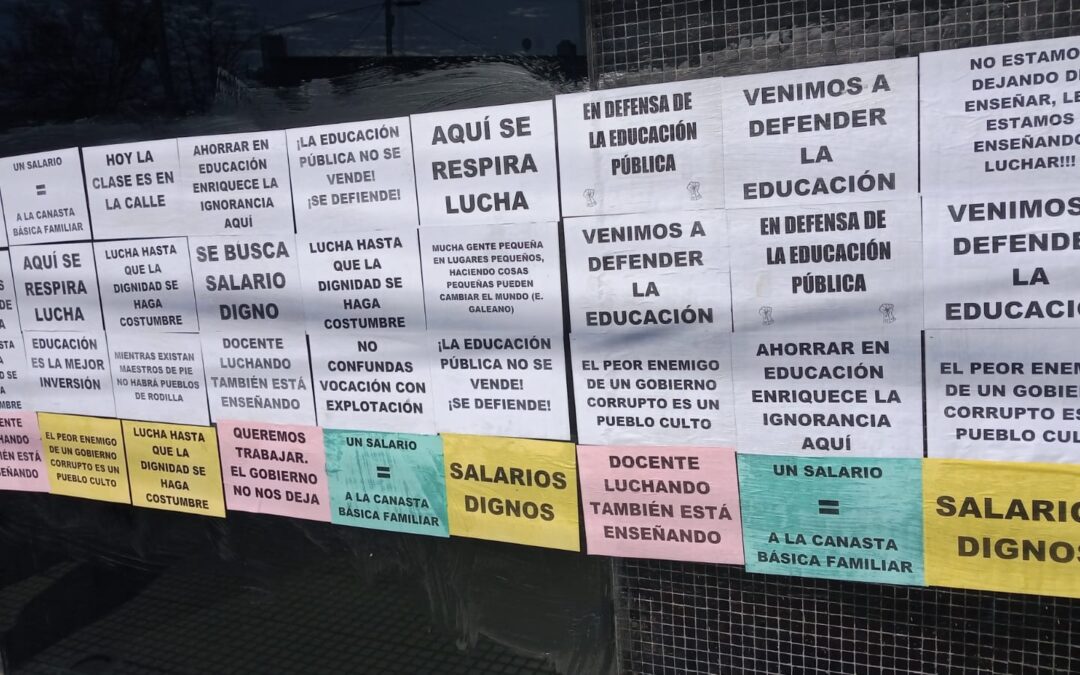 UN SALARIO
=
A LA CANASTA
BÁSICA FAMILIAR
HOY LA
CLASE ES EN
LA CALLE
AHORRAR EN
EDUCACIÓN
ENRIQUECE LA
IGNORANCIA
AQUÍ
¡LA EDUCACIÓN
PÚBLICA NO SE
VENDE!
¡SE DEFIENDE!
AQUÍ SE
RESPIRA
LUCHA
EN DEFENSA DE
LA EDUCACIÓN
PÚBLICA
VENIMOS A
DEFENDER
LA
EDUCACIÓN
NO ESTAMO
DEJANDO DE
ENSEÑAR, LE
ESTAMOS
ENSEÑANDO
LUCHAR!!!
AQUÍ SE
RESPIRA
LUCHA
LUCHA HASTA
QUE LA
DIGNIDAD SE
HAGA
COSTUMBRE
SE BUSCA
SALARIO
DIGNO
LUCHA HASTA
QUE LA
DIGNIDAD SE
HAGA
COSTUMBRE
MUCHA GENTE PEQUEÑA
EN LUGARES PEQUEÑOS,
HACIENDO COSAS
PEQUEÑAS PUEDEN
CAMBIAR EL MUNDO (E.
GALEANO)
VENIMOS A
DEFENDER
LA
EDUCACIÓN
EN DEFENSA DE
LA EDUCACIÓN
PÚBLICA
VENIMOS
DEFENDE
LA
EDUCACI
COSTUMBRE
EDUCACIÓN
ES LA MEJOR
INVERSIÓN
MIENTRAS EXISTAN
MAESTROS DE PIE
NO HABRÁ PUEBLOS
DE RODILLA
DOCENTE
LUCHANDO
TAMBIÉN ESTÁ
ENSEÑANDO
NO
CONFUNDAS
VOCACIÓN CON
EXPLOTACIÓN
¡LA EDUCACIÓN
PÚBLICA NO SE
VENDE!
¡SE DEFIENDE!
EL PEOR ENEMIGO
DE UN GOBIERNO
CORRUPTO ES UN
PUEBLO CULTO
AHORRAR EN
EDUCACIÓN
ENRIQUECE LA
IGNORANCIA
AQUÍ
EL PEOR ENEM
DE UN GOBIER
CORRUPTO ES
PUEBLO CUL
ENTE
HANDO
IÉN ESTÁ
ÑANDO
EL PEOR ENEMIGO
DE UN GOBIERNO
CORRUPTO ES UN
PUEBLO CULTO
LUCHA HASTA
QUE LA
DIGNIDAD SE
HAGA
COSTUMBRE
QUEREMOS
TRABAJAR.
EL GOBIERNO
NO NOS DEJA
UN SALARIO
=
A LA CANASTA
BÁSICA FAMILIAR
SALARIOS
DIGNOS
DOCENTE
LUCHANDO
TAMBIÉN ESTÁ
ENSEÑANDO
UN SALARIO
=
A LA CANASTA
BÁSICA FAMILIAR
SALARIO
DIGNOS